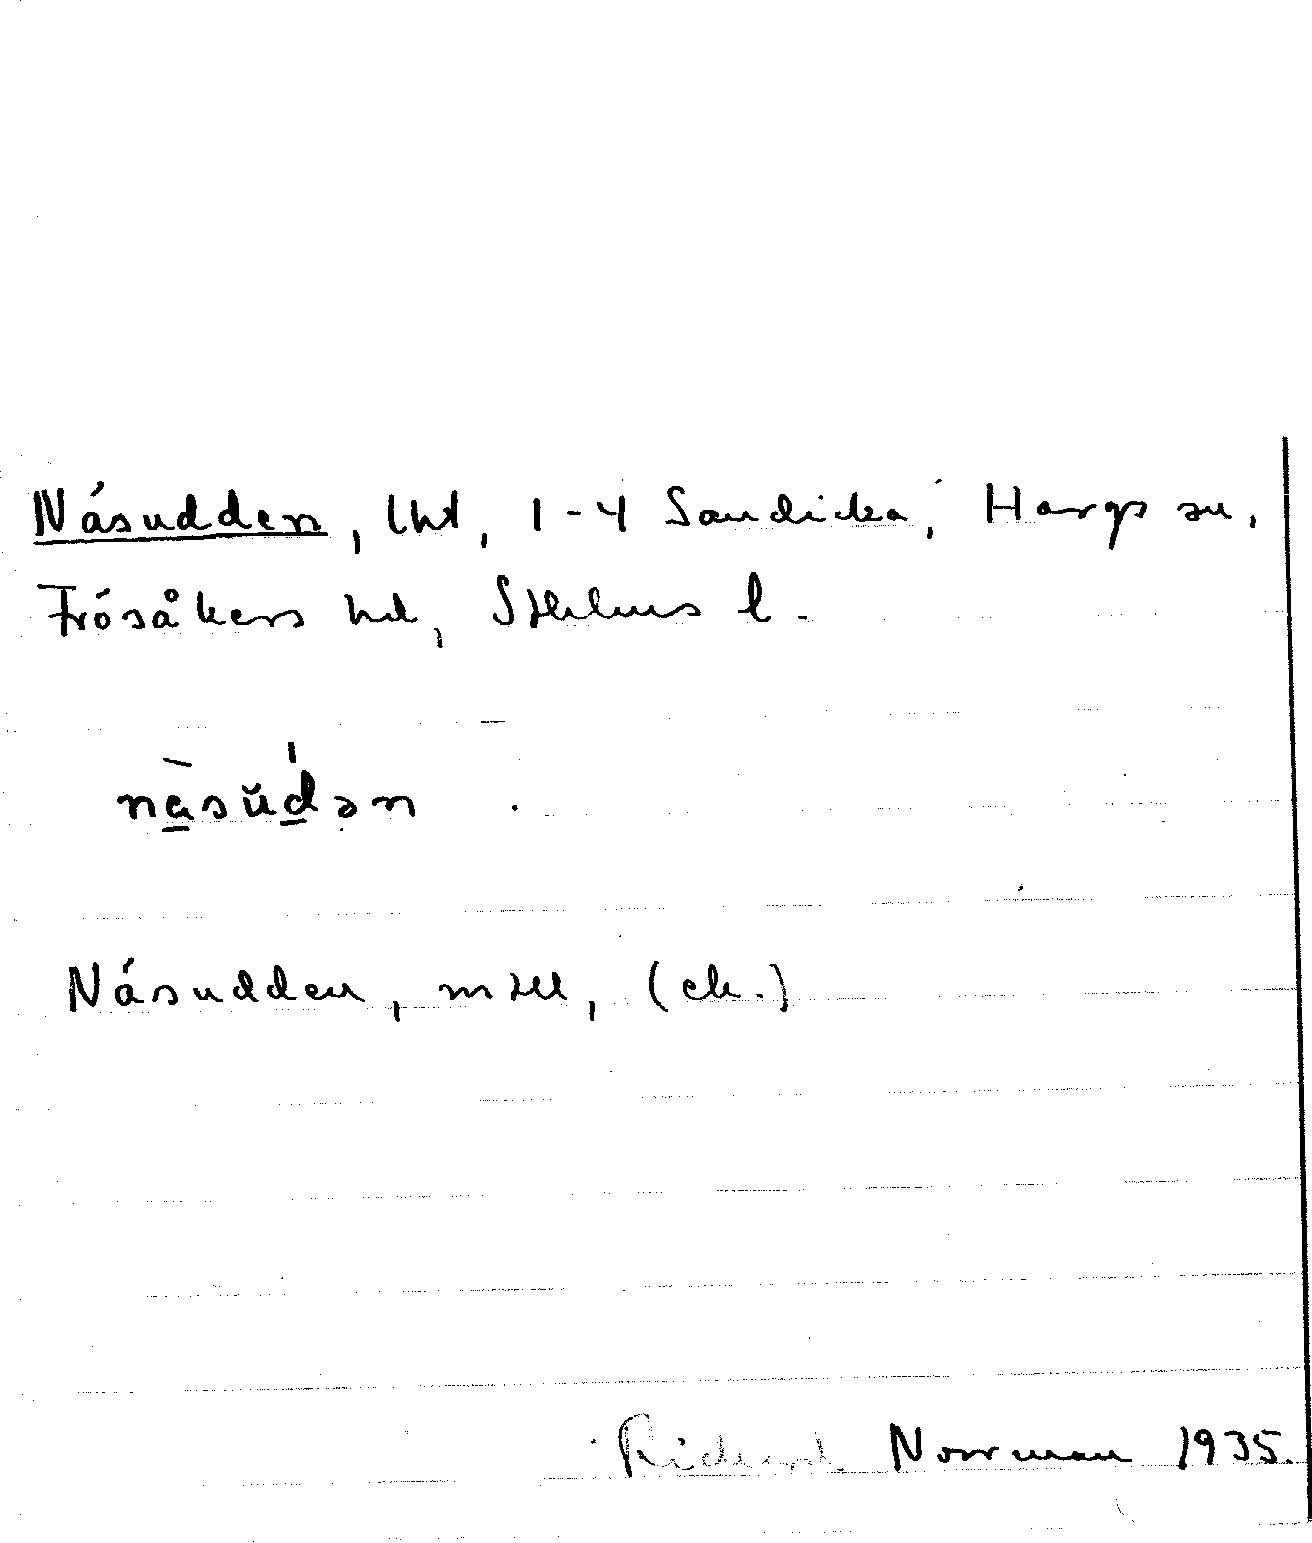 Näsudden, lht, 1-4 Sandicka, Hargs sn,
Frösåkers hd, Sthlms l.
näsŭdən
Näsudden, mtll, (ek.)
Rickard Norrman 1935.